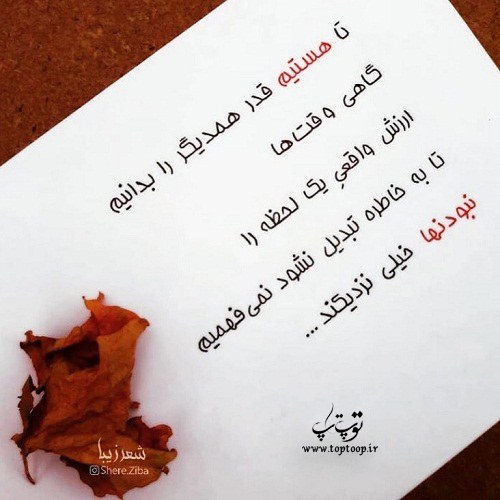 تا هستیم قدر همدیگر را بدانیم
گاهی وقت‌ها
ارزش واقعیِ یک لحظه را
تا به خاطره تبدیل نشود نمی‌فهمیم
نبودنها خیلی نزدیکند...
شعر زیبا
Shere.Ziba
توپ تاپ
www.toptoop.ir